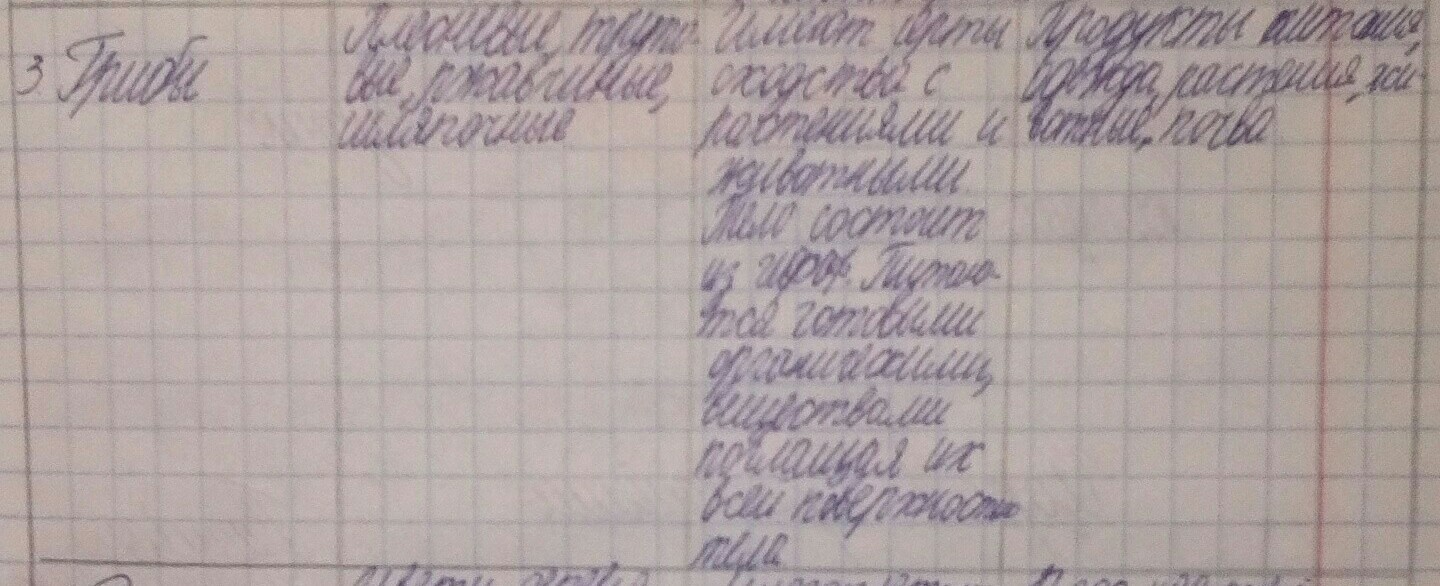 3. Грибы
Плесневые, труто-
вые, ржавчинные,
шляпочные
Имеют черты
сходства с
растениями и
животными.
Тело состоит
из гифов. Питаю-
тся готовыми
органическими,
веществами
поглащая их
всей поверхностью
тела
Продукты питания,
одежда, растения, жи-
вотные, почва